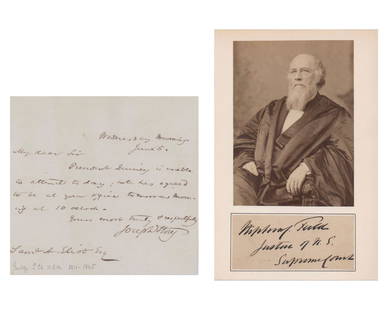 Wednesday Morning
June 5.
My dear Sir
President Quincy is unable
to attend to day; he has agreed
to be at your office tomorrow morn-
ing at 10 oclock.
Yours most truly & respectfully
Joseph Story
Saml A. Eliot Esq
Stephen J. Field
Justice of U.S.
Supreme Court